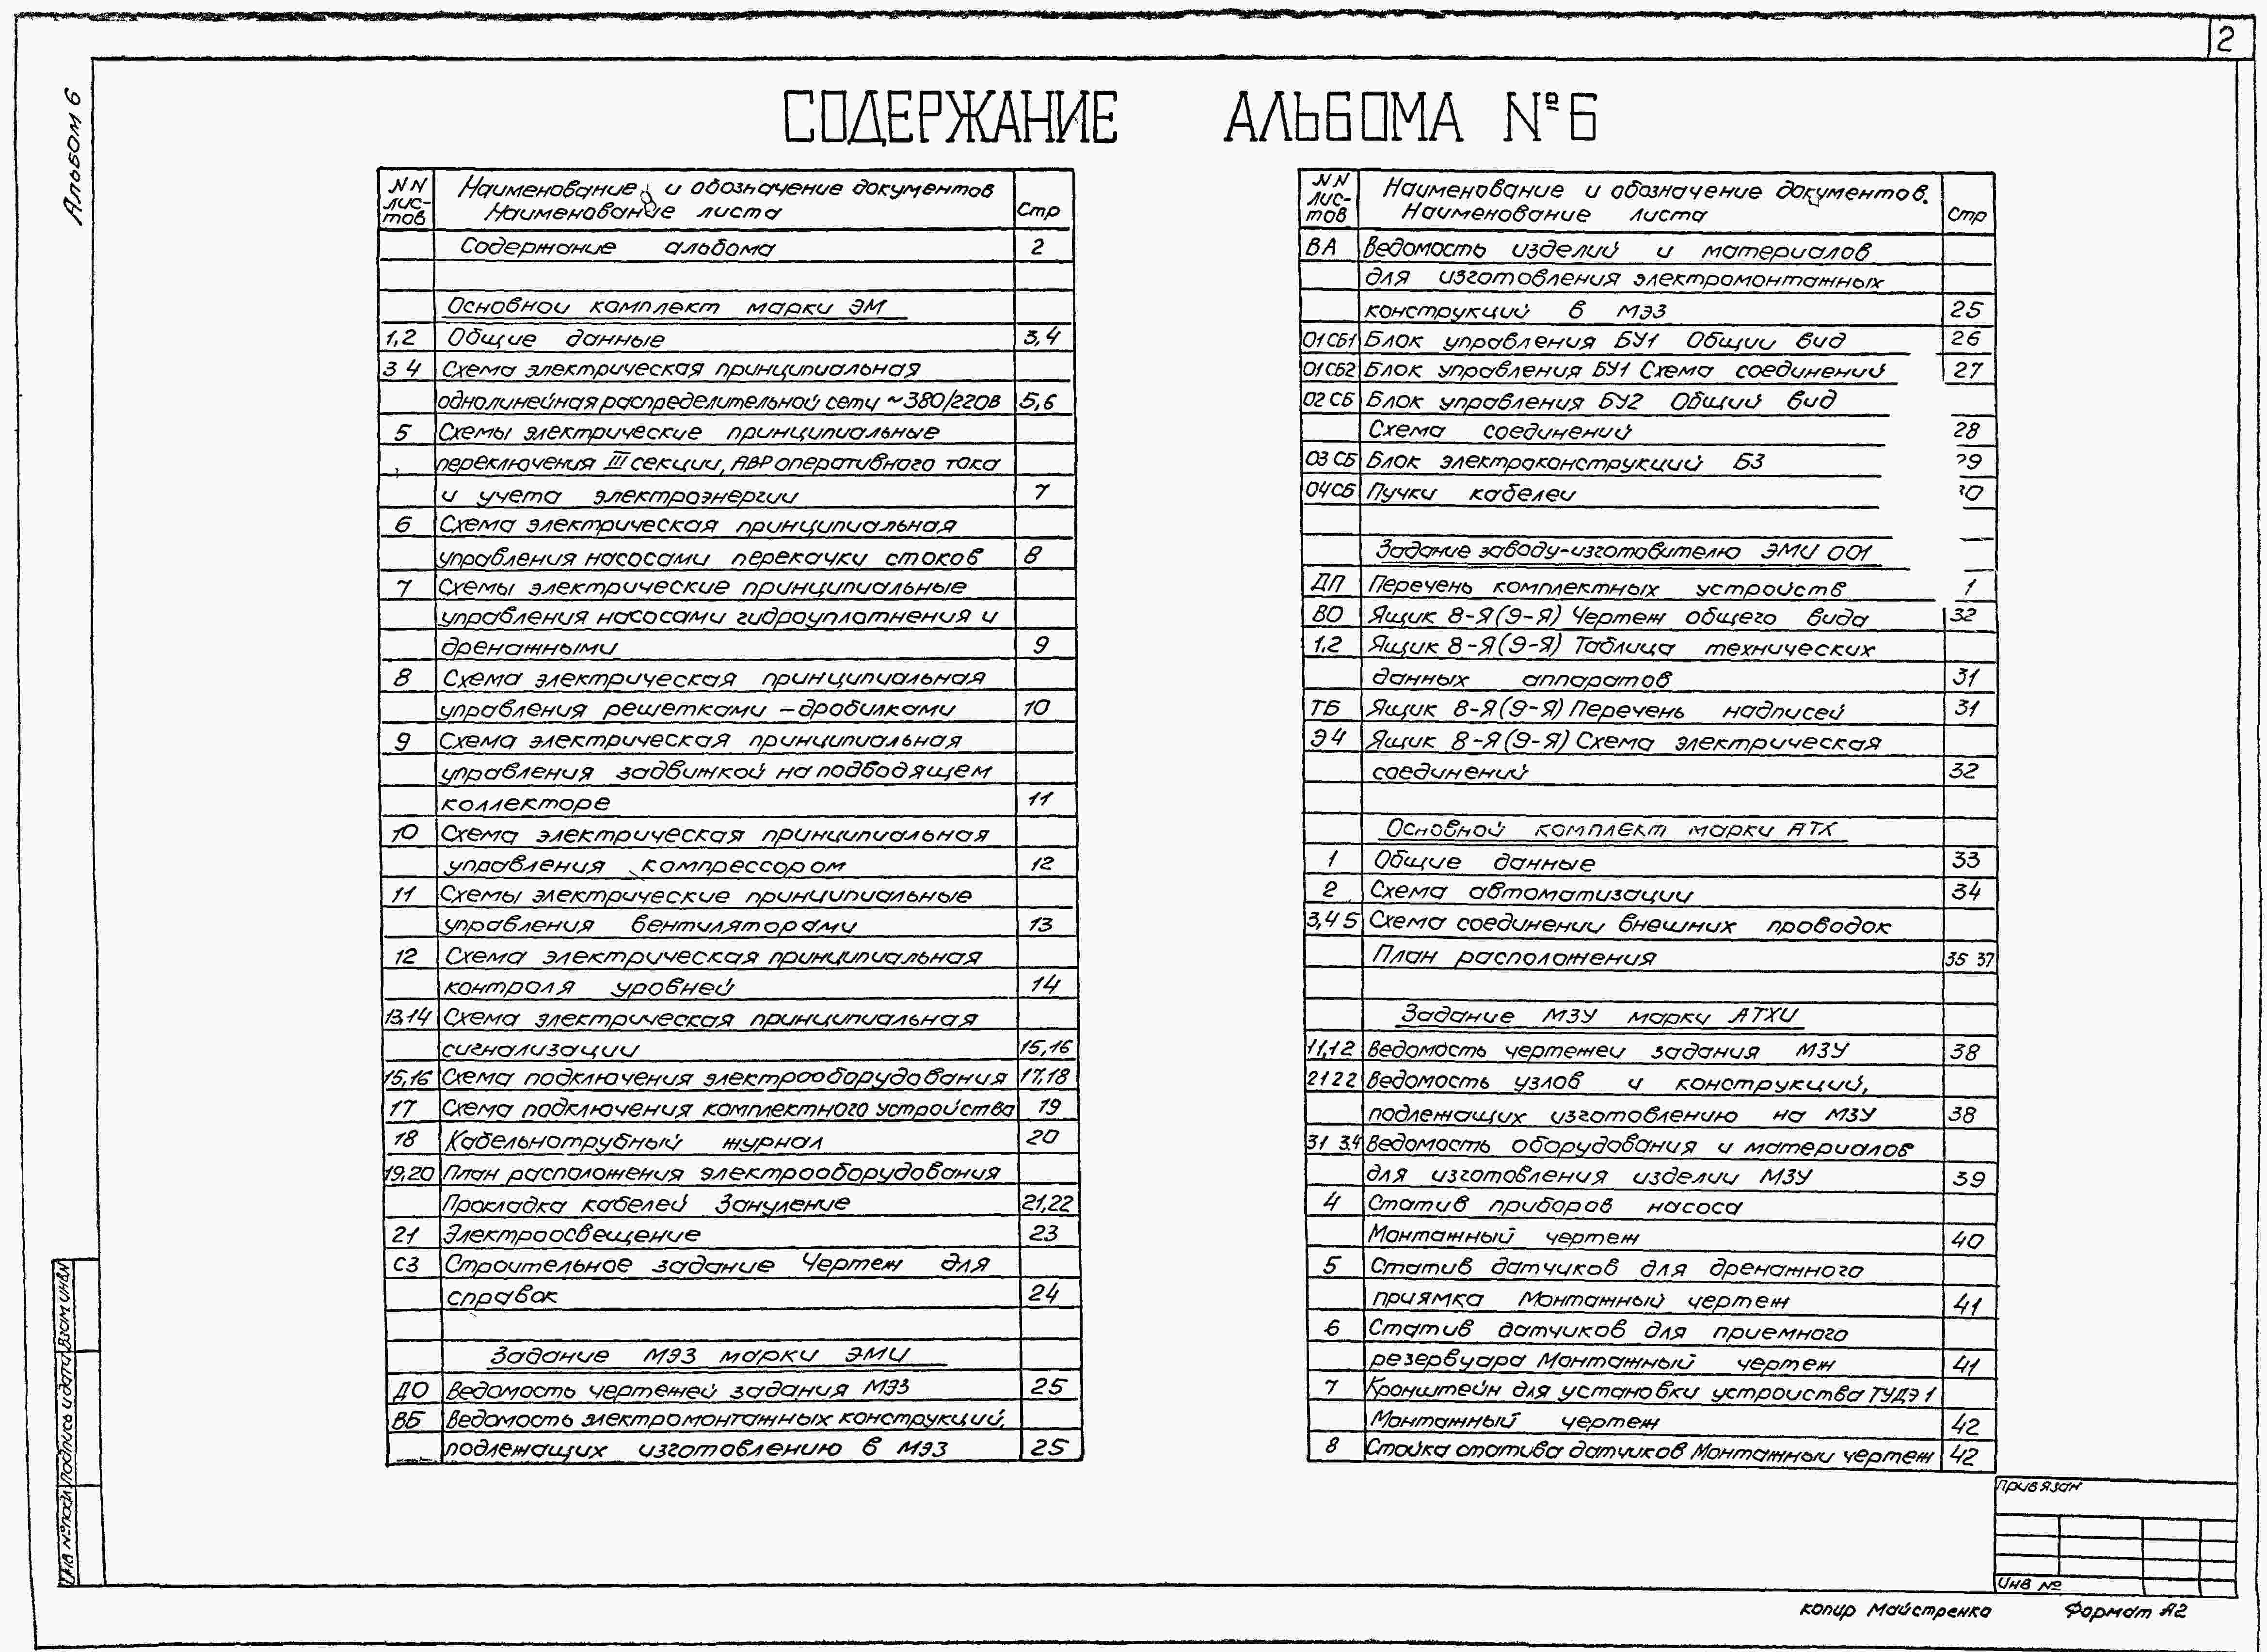 2
Альбом 6
СОДЕРЖАНИЕ АЛЬБОМА №6
NN лис-тов Наименование и обозначение документов Наименование листа Стр
Содержание альбома 2
Основной комплект марки ЭМ
1,2 Общие данные 3,4
3 4 Схема электрическая принципиальная
однолинейная распределительной сети ~380/220в 5,6
5 Схемы электрические принципиальные
переключения III секции, АВР оперативного тока
и учета электроэнергии 7
6 Схема электрическая принципиальная
управления насосами перекачки стоков 8
7 Схемы электрические принципиальные
управления насосами гидроуплотнения и
дренажными 9
8 Схема электрическая принципиальная
управления решетками -дробилками 10
9 Схема электрическая принципиальная
управления задвижкой на подводящем
коллекторе 11
10 Схема электрическая принципиальная
управления компрессором 12
11 Схемы электрические принципиальные
управления вентиляторами 13
12 Схема электрическая принципиальная
контроля уровней 14
13,14 Схема электрическая принципиальная
сигнализации 15,16
15,16 Схема подключения электрооборудования 17,18
17 Схема подключения комплектного устройства 19
18 Кабельнотрубный журнал 20
19,20 План расположения электрооборудования
Прокладка кабелей Зануление 21,22
21 Электроосвещение 23
СЗ Строительное задание Чертеж для
справок 24
Задание МЭЗ марки ЭМИ
ДО Ведомость чертежей задания МЭЗ 25
ВБ Ведомость электромонтажных конструкций,
подлежащих изготовлению в МЭЗ 25
NN лис-тов Наименование и обозначение документов. Наименование листа Стр
ВА Ведомость изделий и материалов
для изготовления электромонтажных
конструкций в МЭЗ 25
01СБ1 Блок управления БУ1 Общий вид 26
01СБ2 Блок управления БУ1 Схема соединений 27
02СБ Блок управления БУ2 Общий вид
Схема соединений 28
03 СБ Блок электроконструкций Б3 29
04СБ Пучки кабелей 0
Задание заводу-изготовителю ЭМИ 001
ДП Перечень комплектных устройств 1
ВО Ящик 8-Я(9-Я) Чертеж общего вида 32
1.2 Ящик 8-Я(9-Я) Таблица технических
данных аппаратов 31
ТБ Ящик 8-Я(9-Я) Перечень надписей 31
Э4 Ящик 8-Я(9-Я) Схема электрическая
соединений 32
Основной комплект марки АТХ
1 Общие данные 33
2 Схема автоматизации 34
3,4 5 Схема соединений внешних проводок
План расположения 35 37
Задание МЗУ марки АТХИ
11,12 Ведомость чертежей задания МЗУ 38
21 22 Ведомость узлов и конструкций,
подлежащих изготовлению на МЗУ 38
31 3.4 Ведомость оборудования и материалов
для изготовления изделий МЗУ 39
4 Статив приборов насоса
Монтажный чертеж 40
5 Статив датчиков для дренажного
приямка Монтажный чертеж 41
6 Статив датчиков для приемного
резервуара Монтажный чертеж 41
7 Кронштейн для установки устройства ТУДЭ 1
Монтажный чертеж 42
8 Стойка статива датчиков Монтажный чертеж 42
Инв №подл Подпись и дата Взам инв№
Привязан
Инв №
Копир Майстренко Формат А2